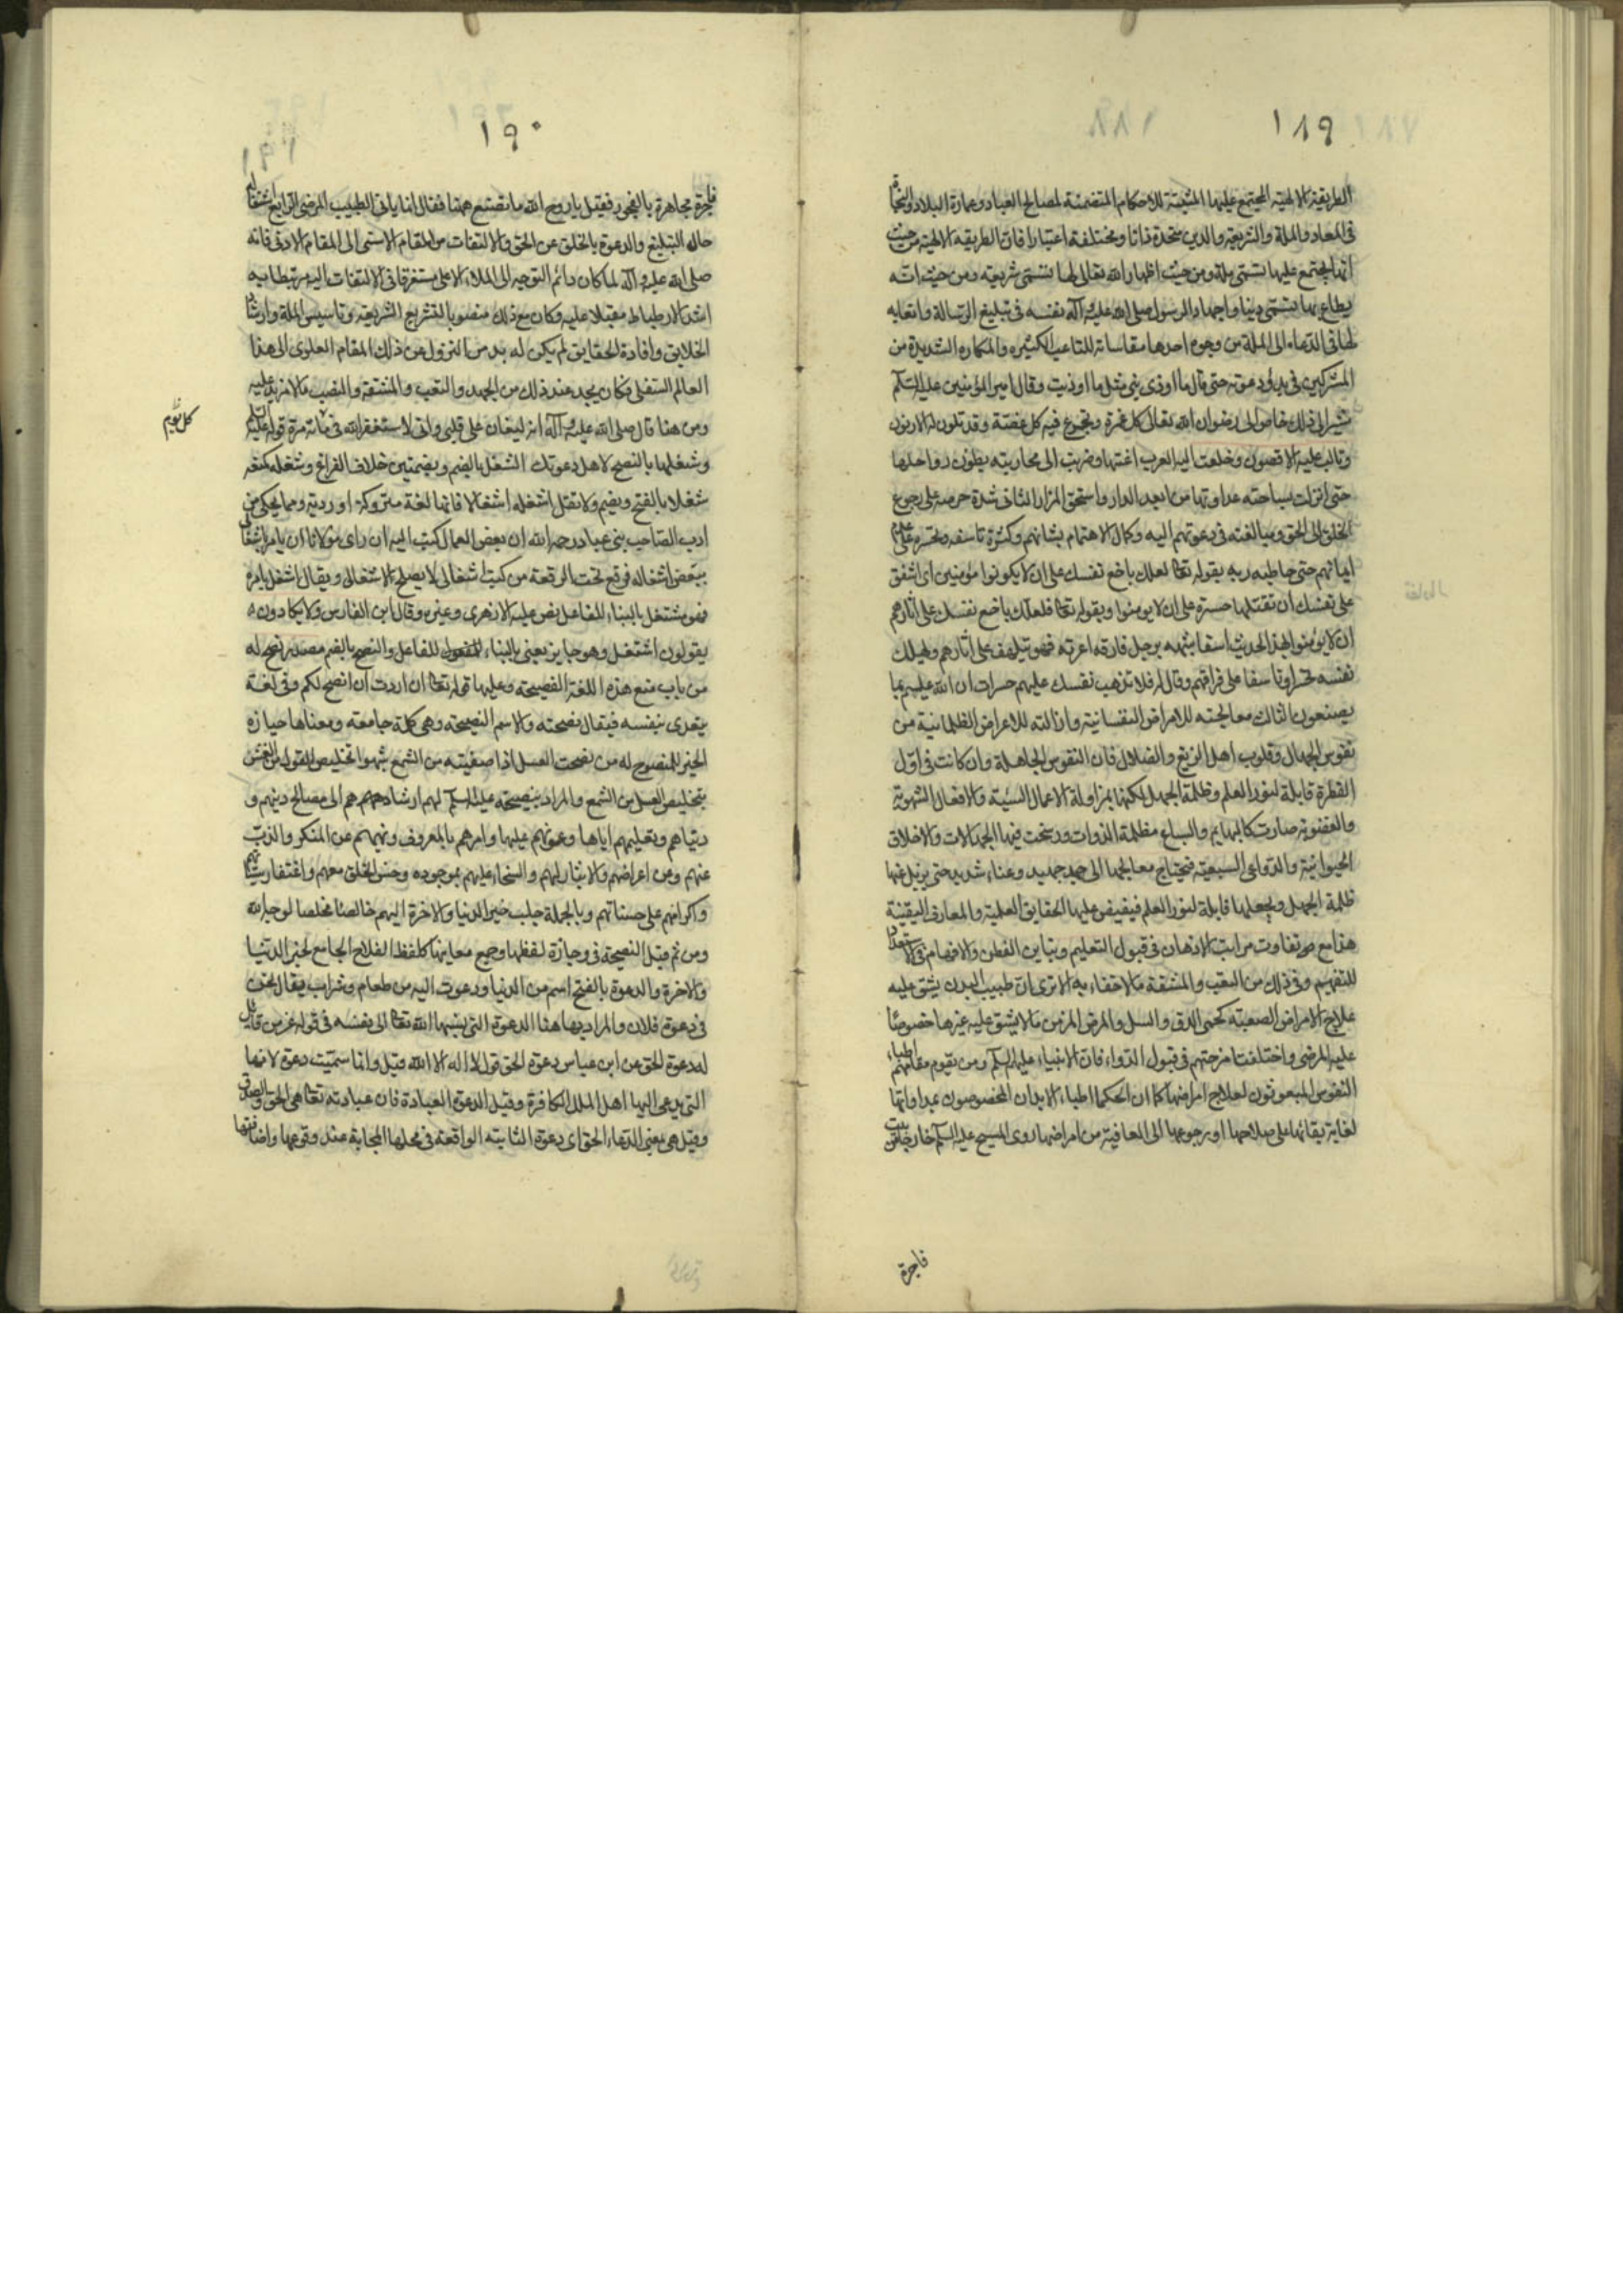 ١٨٩
الطريقة الالهية المجتمع عليها المثبتة للاحكام المتضمنة لمصالح العباد وعمارة البلاد والنجاة
فى المعاد والملة والشريعة والدين متحدة ذاتا ومختلفة اعتبارا فان الطريقه الالهية من حيث
انها يجتمع عليها تسمى ملة ومن حيث اظهار الله تعالى لها تسمى شريعة ومن حيث انه
يطاع بها تسمى دينا واجهاد الرسول صلى الله عليه وآله نفسه فى تبليغ الرسالة واتعابه
لها فى الدعاء الى الملة من وجوه احدها مقاساته للمتاعب الكثيره والمكاره الشديدة من
المشركين فى بدؤ دعوته حتى قال ما اوذى نبى مثل ما اوذيت وقال امير المؤمنين عليه السلم
يشير الى ذلك خاض الى رضوان الله تعالى كل غمرة وتجرع فيه كل غصة وقد تلون له الادنون
وتالب عليه الاقصون وخلعت اليه العرب اعنتها وضربت الى محاربته بطون رواحلها
حتى انزلت بساحته عداوتها من ابعد الدار واسحق المزار الثانى شدة حرصه على رجوع
الخلق الى الحق ومبالغته فى دعوتهم اليه وكمال الاهتمام بشانهم وكثرة تاسفه وتحسره على عدم
ايمانهم حتى خاطبه ربه بقوله تعا لعلك باخع نفسك على ان لا يكونوا مؤمنين اى اشفق
على نفسك ان تقتلها حسرة على ان لا يومنوا وبقوله تعا فلعلك باخع نفسك على اثارهم
ان لا يؤمنوا بهذا الحديث اسفا شبهه برجل فارقه اعزته فهو يتلهف على اثارهم ويهلك
نفسه تحسرا وتاسفا على فراقهم وقال له فلا تذهب نفسك عليهم حسرات ان الله عليم بما
يصنعون الثالث معالجته للامراض النفسانية وازالته للاعراض الظلمانية من
نفوس الجهال وقلوب اهل الزيغ والضلال فان النفوس الجاهلة وان كانت فى اول
الفطرة قابلة لنور العلم وظلمة الجهل لكنها بمزاولة الاعمال السيئة والافعال الشهوية
والغضبية صارت كالبهايم والسباع مظلمة الذوات ورسخت فيها الجهالات والاخلاق
الحيوانية والدواعى السبعية فيحتاج معالجها الى جهد جهيد وعناء شديد حتى يزيل عنها
ظلمة الجهل ويجعلها قابلة لنور العلم فيفيض عليها الحقايق العلمية والمعارف اليقينية
هذا مع تفاوت مراتب الاذهان فى قبول التعليم وتباين الفطن والافهام فى الاستعداد
للتفهيم وفى ذلك من التعب والمشقة ما لا خفاء به الا ترى ان طبيب البدن يشق عليه
علاج الامراض الصعبة كحمى الدق والسل والمرض المزمن ما لا يشق عليه غيرها خصوصا
عليه المرضى واختلفت امزجتهم فى قبول الدواء فان الانبياء عليهم السلم ومن يقوم مقامهم اطباء
النفوس المبعوثون لعلاج امراضها كما ان الحكما اطباء الابدان المخصوصون بمداواتها
لغاية بقائها على صلاحها او رجوعها الى العافية من امراضها روى المسيح عليه السلم خارجا من بيت
فاجرة
١٩٠
فاجرة مجاهرة بالفجور فقيل يا روح الله ما تصنع ههنا فقال انما ياتى الطبيب المرضى الرابع اشتغاله
حال التبليغ والدعوة بالخلق عن الحق والالتفات من المقام الاسنى الى المقام الادنى فانه
صلى الله عليه وآله لما كان دائم التوجه الى الملاء الاعلى مستغرقا فى الالتفات اليه مرتبطا به
اشد الارتباط مقبلا عليه وكان مع ذلك منصوبا لتشريع الشريعة وتاسيس الملة وارشاد
الخلايق وافادة الحقايق لم يكن له بد من النزول من ذلك المقام العلوى الى هذا
العالم السفلى فكان يجد عند ذلك من الجهد والتعب والمشقة والنصب ما لا مزيد عليه
ومن هنا قال صلى الله عليه وآله انه ليغان على قلبى وانى لاستغفر الله فى مائة مرة قوله عليه السلم
كل يوم
وشغلها بالنصح لاهل دعوتك الشغل بالضم وبضمتين خلاف الفراغ وشغله كمنعه
شغلا بالفتح ويضم ولا تقل اشغله اشغالا فانها لغة متروكة او ردية ومما يحكى من
ادب الصاحب بن عباد رحمه الله ان بعض العمال كتب اليه ان راى مولانا ان يامر باشغالى
ببعض اشغاله فوقع تحت الرقعة من كتب اشغالى لا يصلح لاشغالى ويقال اشتغل بامره
فهو مشتغل بالبناء للفاعل نص عليه الازهرى وغيره وقال ابن الفارس ولا يكادون
يقولون اشتغل وهو جايز يعنى بالبناء للمفعول للفاعل والنصح بالضم مصدر نصح له
من باب منع هذه اللغة الفصيحة وعليها قوله تعا ان اردت ان انصح لكم وفى لغة
يتعدى بنفسه فيقال نصحته والاسم النصيحة وهى كلمة جامعة ومعناها حيازه
الخير للمنصوح له من نصحت العسل اذا صفيته من الشمع شبهوا تخليص القول من الغش
بتخليص العسل من الشمع والمراد بنصيحته عليه السلم لهم ارشادهم الى مصالح دينهم و
دنياهم وتعليمهم اياها وعونهم عليها وامرهم بالمعروف ونهيهم عن المنكر والذب
عنهم وعن اعراضهم والايثار لهم والسخاء عليهم بموجوده وحسن الخلق معهم واغتفار سيئاتهم
واكرامهم على حسناتهم وبالجملة جلب خير الدنيا والاخرة اليهم خالصا مخلصا لوجه الله
ومن ثم قيل النصيحة فى وجازة لفظها وجمع معانيها كلفظ الفلاح الجامع لخير الدنيا
والاخرة والدعوة بالفتح اسم من الدنيا ودعوت اليه من طعام وشراب يقال نحن
فى دعوة فلان والمراد بها هنا الدعوة التى نسبها الله تعا الى نفسه فى قوله عز من قائل
له دعوة الحق عن ابن عباس دعوة الحق قول لا اله الا الله وقيل وانما سميت دعوة لانها
التى يدعى اليها اهل الملل الكافرة وقيل الدعوة العبادة فان عبادته تعا هى الحق والصدق
وقيل هى بمعنى الدعاء الحق اى دعوة الثابتة الواقعة فى محلها المجابة عند وقوعها واضافتها